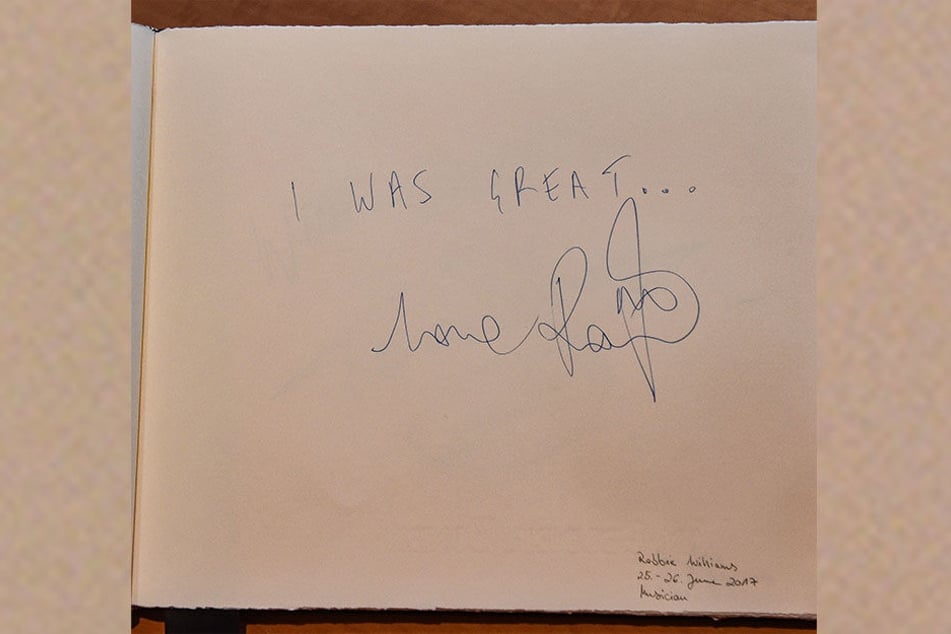 I WAS GREAT...
Love
Robbie Williams
25.-26. June 2017
Musician